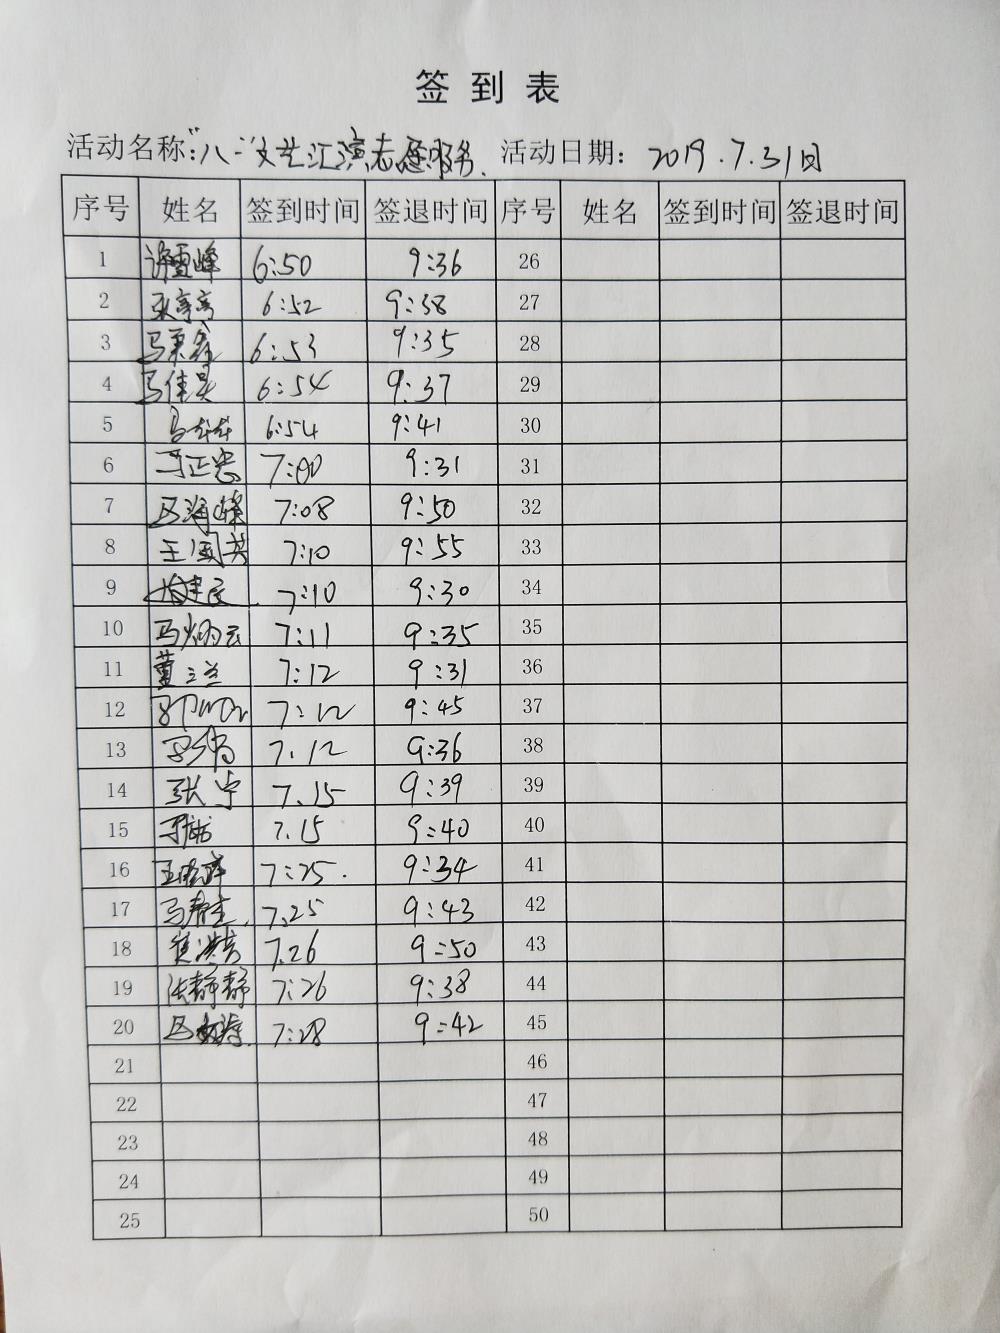 签到表
活动名称:"八一"文艺汇演志愿服务. 活动日期: 2019.7.31日
序号 姓名 签到时间 签退时间 序号 姓名 签到时间 签退时间
1 许雪峰 6:50 9:36 26
2 张亭亭 6:52 9:38 27
3 6:53 9:35 28
4 马佳昊 6:54 9:37 29
5 6:54 9:41 30
6 马正忠 7:00 9:31 31
7 马海峰 7:08 9:50 32
8 王国英 7:10 9:55 33
9 7:10 9:30 34
10 马炳云 7:11 9:35 35
11 董三兰 7:12 9:31 36
12 7:12 9:45 37
13 7.12 9:36 38
14 张宁 7.15 9:39 39
15 7.15 9:40 40
16 王晓萍 7:25. 9:34 41
17 7.25 9:43 42
18 7.26 9:50 43
19 张静静 7:26 9:38 44
20 7:28 9:42 45
21 46
22 47
23 48
24 49
25 50